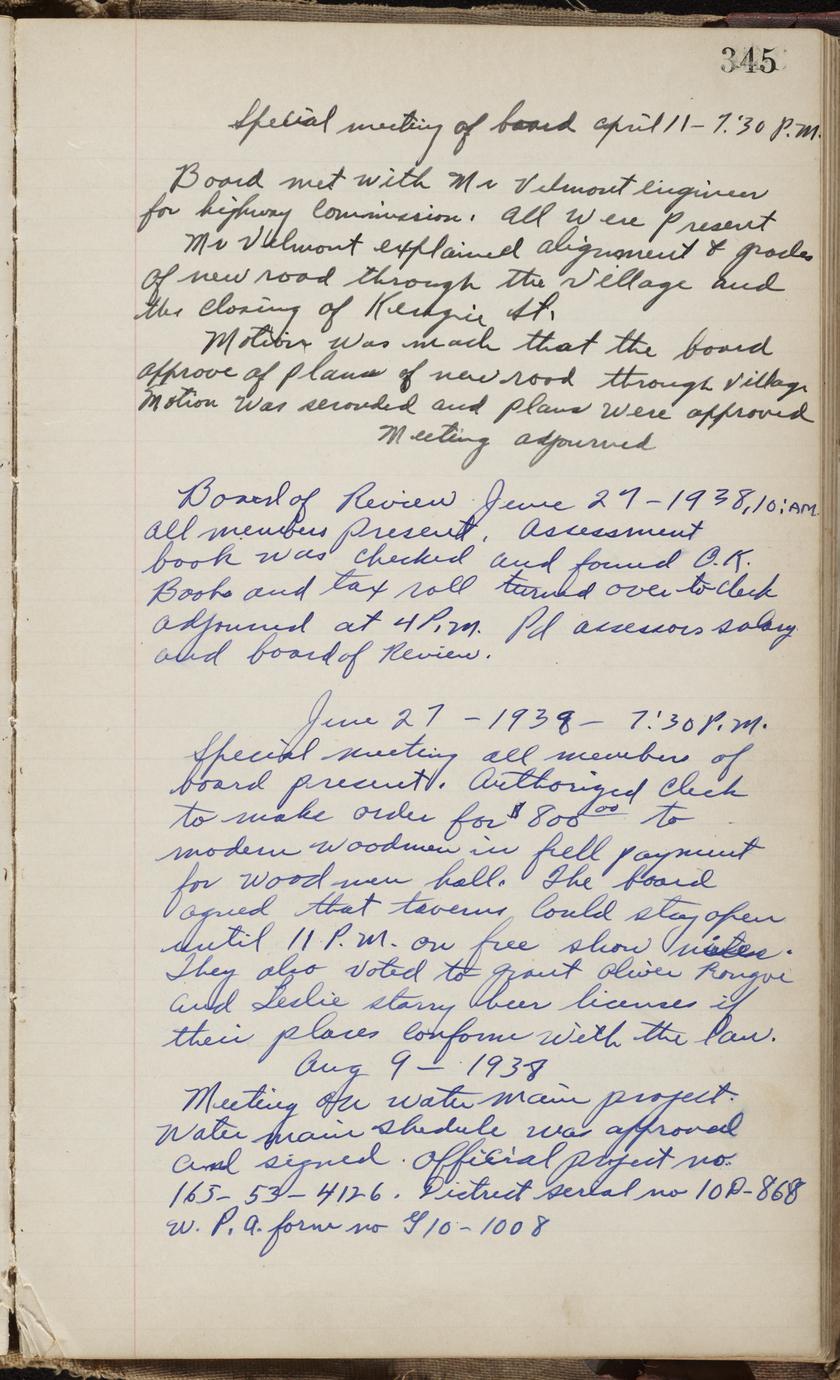 345
Special meeting of board april 11 - 7:30 P.M.
Board met with Mr Velmont engineer
for highway Commission. all were present
Mr Velmont explained alignment & grades
of new road through the village and
the closing of Kengie St.
Motion was made that the board
approve of plans of new road through village
Motion was seconded and plans were approved
Meeting adjourned
Board of Review June 27 - 1938, 10: AM
all members present. Assessment
book was checked and found O.K.
Books and tax roll turned over to clerk
adjourned at 4 P.M. Pd assessors salary
and board of Review.
June 27 - 1938 - 7:30 P.M.
Special meeting all members of
board present. Authorized Clerk
to make order for $800.00 to
modern woodmen in full payment
for woodmen hall. The board
agreed that taverns could stay open
until 11 P.M. on free show nites.
They also voted to grant Oliver Rongve
and Leslie Starry beer licenses if
their places conform with the law.
Aug 9 - 1938
Meeting on water main project.
Water main shedule was approved
and signed. Official project no.
165-53-4126. District serial no 10D-868
W.P.A. form no G10-1008